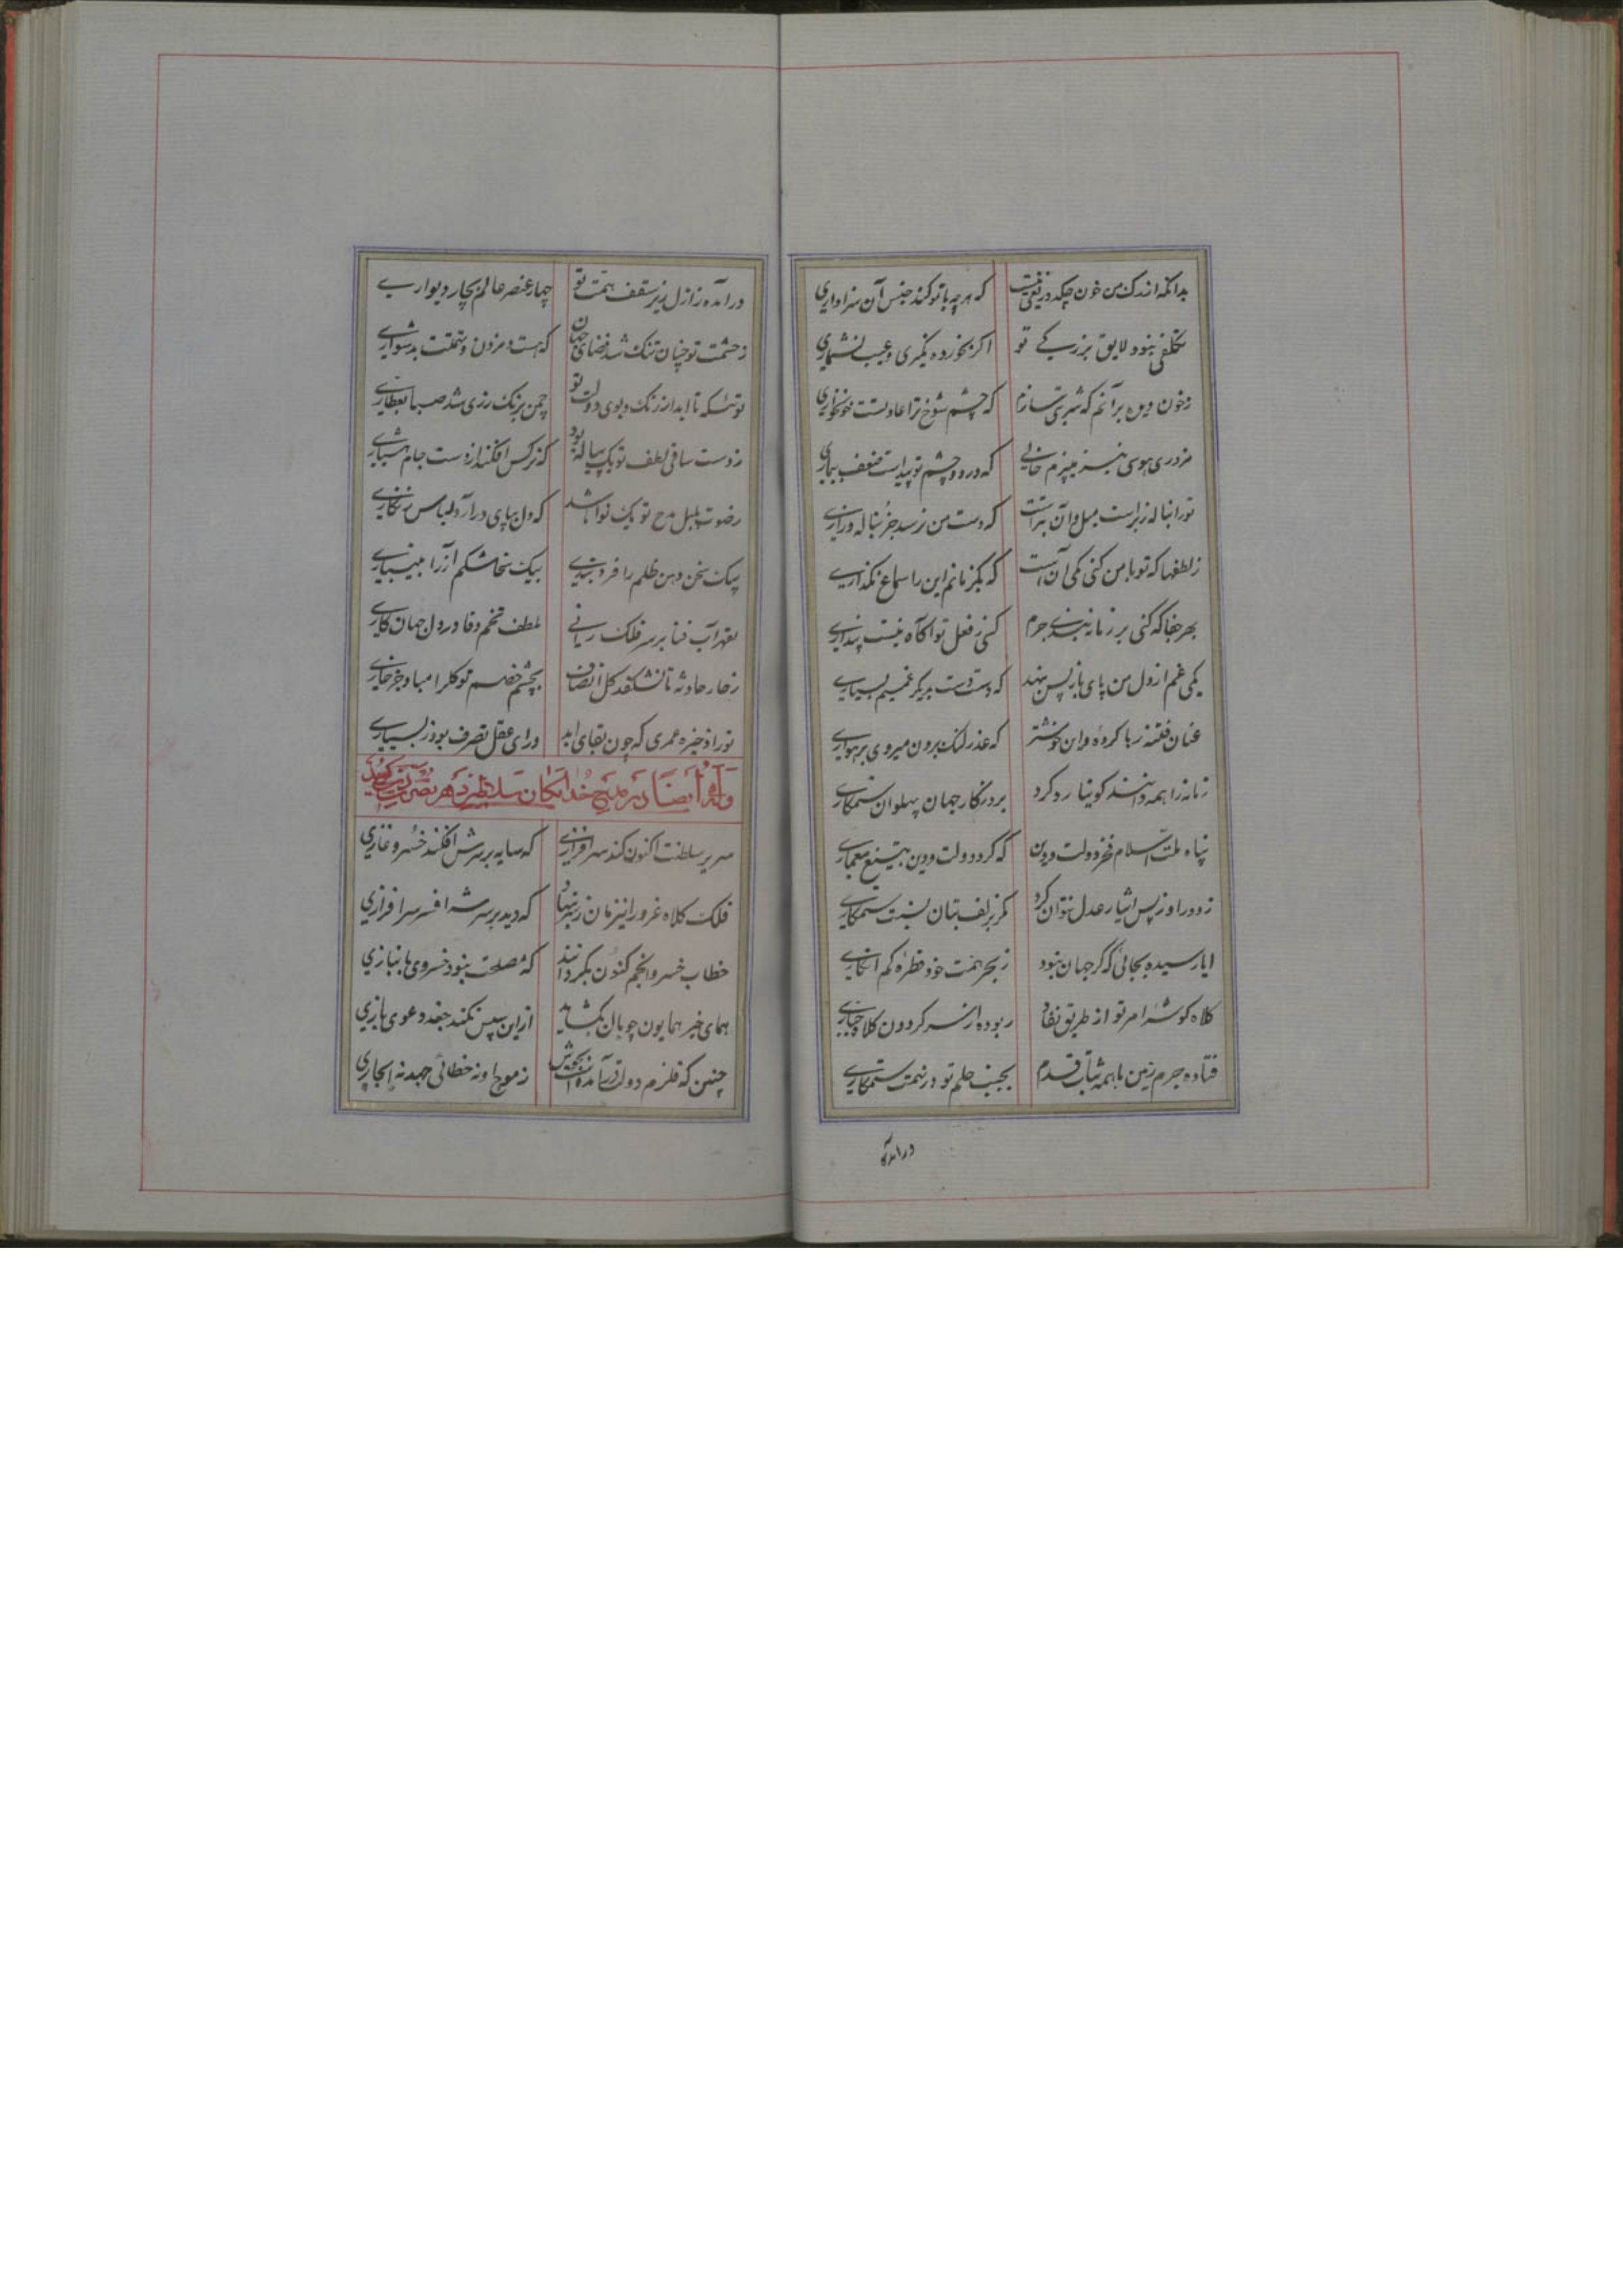 بدانکه از رگ من خون چکد دریغی نیست که هر چه با تو کند جنس آن سزاواری
تکلفی نبود لایق بزرکی تو اگر بخورده نگیری و عیب نشماری
ز خون دیده برآنم که شربتی سازم که چشم شوخ ترا عادتست خونخواری
که در دو چشم تو پیداست ضعف بیماری
که دست من نرسد جز بناله و زاری
ز لطفها که تو با من کنی یکی آن است که یکزمانم این را سماع نگذاری
بهر جفا که کنی بر زمانه بندی جرم کسی ز فعل تو آگاه نیست پنداری
یکی غم از دل من پای باز پس ننهد که دست دست بدیگر غمیم بسپاری
عنان فتنه رها کرده و این خوشتر که عذر لنگ برون میروی برهواری
زمانه را همه دانند کو نیارد کرد بروزگار جهان پهلوان ستمکاری
پناه ملت اسلام فخر دولت و دین که کرد دولت و دین را بتیغ معماری
ز دور او ز پس ایثار عدل نتوان کرد مگر بزلف بتان نسبت ستمکاری
ایا رسیده بجائی که گر جهان نبود ز بحر همت خود قطره کم انگاری
کلاه گوشه امر تو از طریق نفاد ربوده از سر گردون کلاه جباری
فتاده جرم زمین با همه ثبات قدم بجنب حلم تو در تهمت سبکباری
در آمده
در آمده ز ازل زیر سقف همت تو چهار عنصر عالم بچار دیواری
ز حشمت تو چنان تنک شد فضای جهان که هست دم زدن دشمنت بدشواری
توئی که تا ابد از رنگ و بوی دولت تو چمن برنگ رزی شد صبا بعطاری
ز دست ساقی لطف تو یک پیاله بود که نرگس افکند از دست جام هشیاری
ز صوت بلبل مدح تو یک نوا باشد که گل بپای در آرد لباس زنگاری
بیک سخن دهن ظلم را فرو بندی
بقهر آب فنا بر سر فلک رانی بلطف تخم وفا در دل جهان کاری
ز خار حادثه تا نشکفد گل انصاف بچشم خصم تو گلرا مباد جز خاری
تو را ذخیره عمری که چون بقای ابد ورای عقل تصرف بود ز بسیاری
وله ایضا در مدح خدایکان سلاطین دهر نصرت الدین گوید
سریر سلطنت اکنون کند سرافرازی که سایه بر سرش افکند خسرو غازی
فلک کلاه غرور این زمان ز سر بنهاد که دید بر سر شه افسر سرافرازی
خطاب خسرو انجم کنون بگردانند که مصلحت نبود خسروی بانبازی
همای خیر همایون چو بال بگشاید ازین سپس نکند جغد دعوی بازی
چنین که قلزم دولت در آمدست بجوش ز موج او نه خطائی جهد نه ابخازی